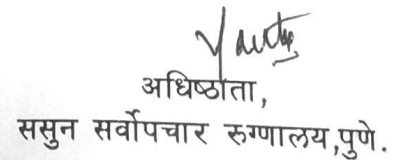 अधिष्ठाता,
ससुन सर्वोपचार रुग्णालय,पुणे.